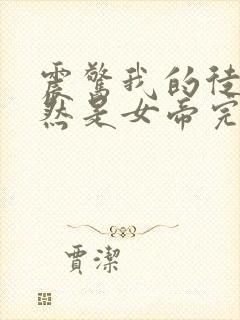 震驚我的徒
然是女帝完
賈潔